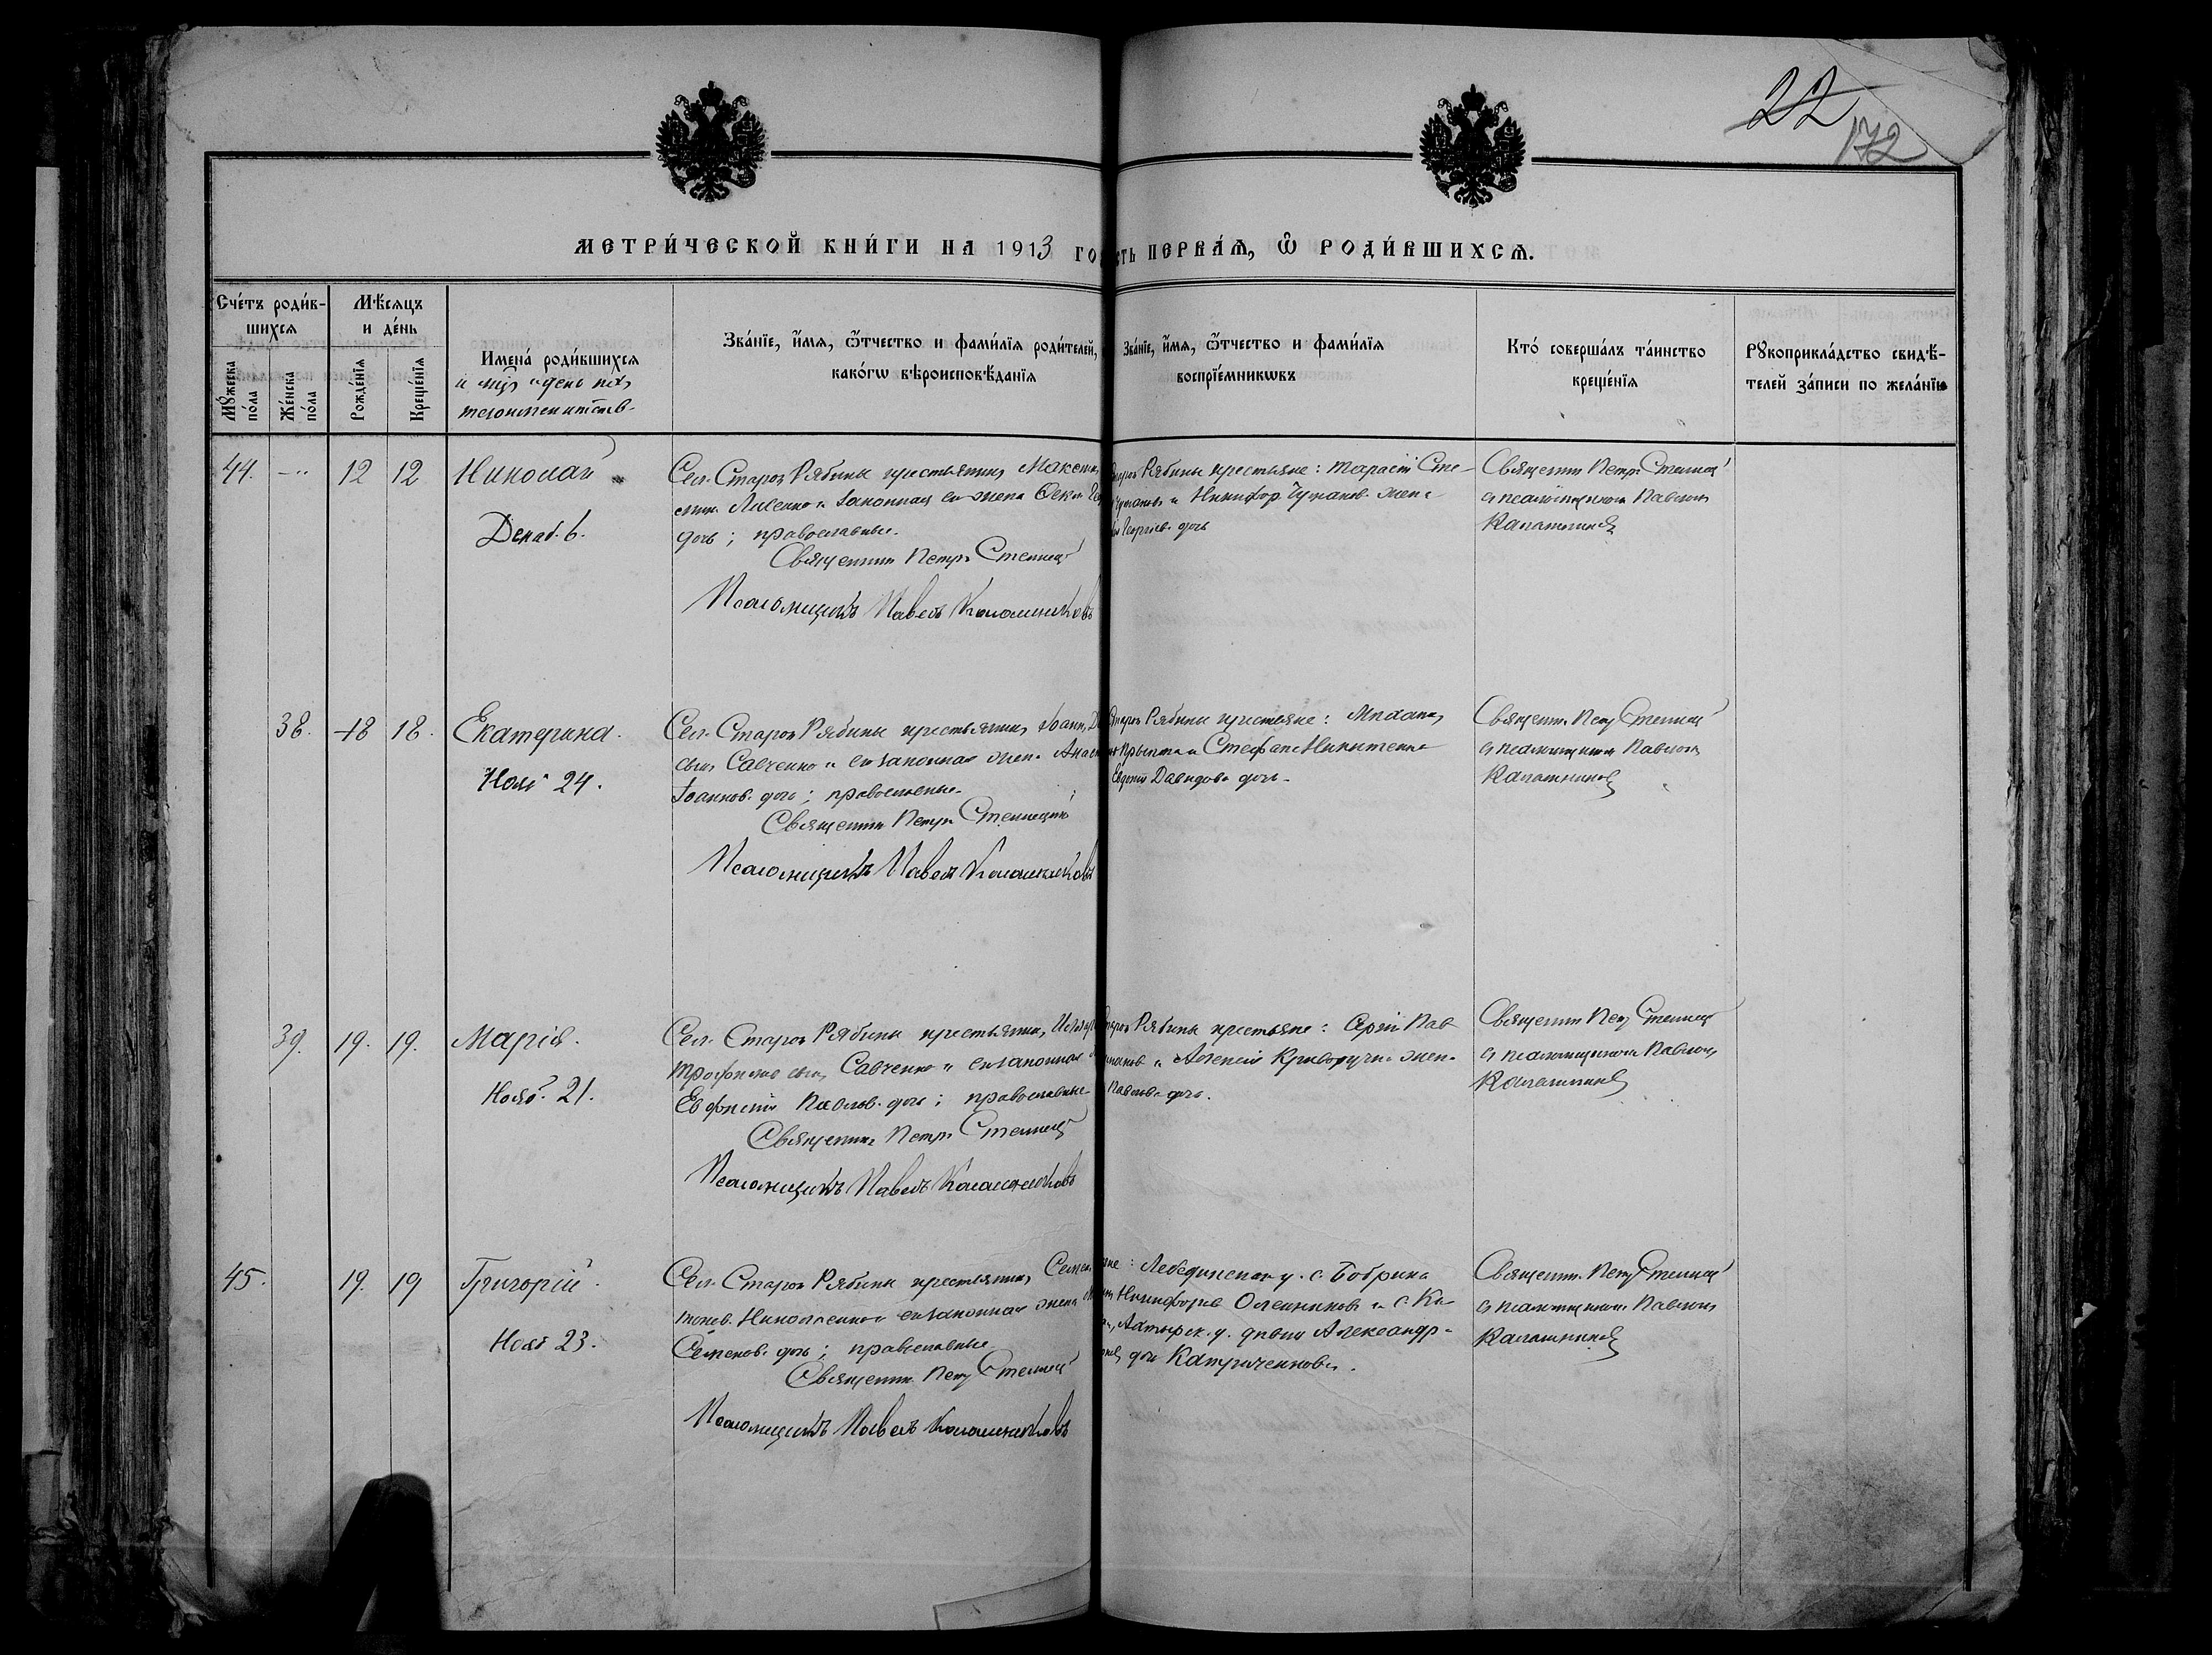 22
172
МЕТРИ́ЧЕСКОЙ КНИ́ГИ НА 1913 ГО
СТЬ ПЕРВА́Я, Ѿ РОДИ́ВШИХСЯ.
Сче́тъ роди́в-
шихся
Мѣ́сяцъ
и де́нь
Мꙋ́жеска
по́ла
Же́нска
по́ла
Рожде́нїя
Креще́нїя
Имена́ роди́вшихся
и день
тезоименитств-
Зва́нїе, и́мя, ѿтчество и фами́лїя роди́телей,
како́гѡ вѣроисповѣ́данїя
Зва́нїе, и́мя, ѿтчество и фами́лїя
воспрїе́мникѡвъ
Кто́ соверша́лъ та́инство
креще́нїя
Рꙋкоприкла́дство свидѣ́-
телей за́писи по жела́нїю
44. 12 12 Николай
Декаб. 6.
Сел. Старой Рябины крестьянинъ Максим
Лисенко и законная его жена Фекл
дочь; православные.
Священник Петръ Стеллецк
Псаломщикъ Павелъ Калашниковъ
Рябины крестьяне: Тарасій Сте-
и Никифор. жена
Георгіев. дочь
Священник Петръ Стеллецк
съ псаломщиком Павлом
Калашников
38. 18 18. Екатерина.
Нояб 24.
Сел. Старой Рябины крестьянинъ Іоанн
сынъ Савченко и его законная жена Анас
Іоаннов. дочь; православные
Священник Петръ Стеллецкій
Псаломщикъ Павелъ Калашниковъ
Рябины крестьяне:
и Стефан Никитенко
Евдокія Давидова дочь
Священ. Петр Стеллецк
съ псаломщиком Павлом
Калашников
39. 19. 19. Марія.
Нояб. 21.
Сел. Старой Рябины крестьянинъ
Трофимов сынъ Савченко и его законная
Евфимія Павлов. дочь; православные
Священник Петръ Стеллецк
Псаломщикъ Павелъ Калашниковъ
Рябины крестьяне: Сергій Пав
и Криворучко жена
Павлова дочь.
Священник Петр Стеллецк
съ псаломщиком Павлом
Калашников
45. 19. 19 Григорій.
Нояб 23.
Сел. Старой Рябины крестьянинъ Семен
Николаенко и его законная жена
Семенов. дочь; православные
Священник Петр Стеллецк
Псаломщикъ Павелъ Калашниковъ
не: Лебединскаго у. с. Бобрика
Никифоров Олейников и с. Ка
Ахтырск. у. девица Александр-
дочь
Священник Петр Стеллецк
съ псаломщиком Павлом
Калашников